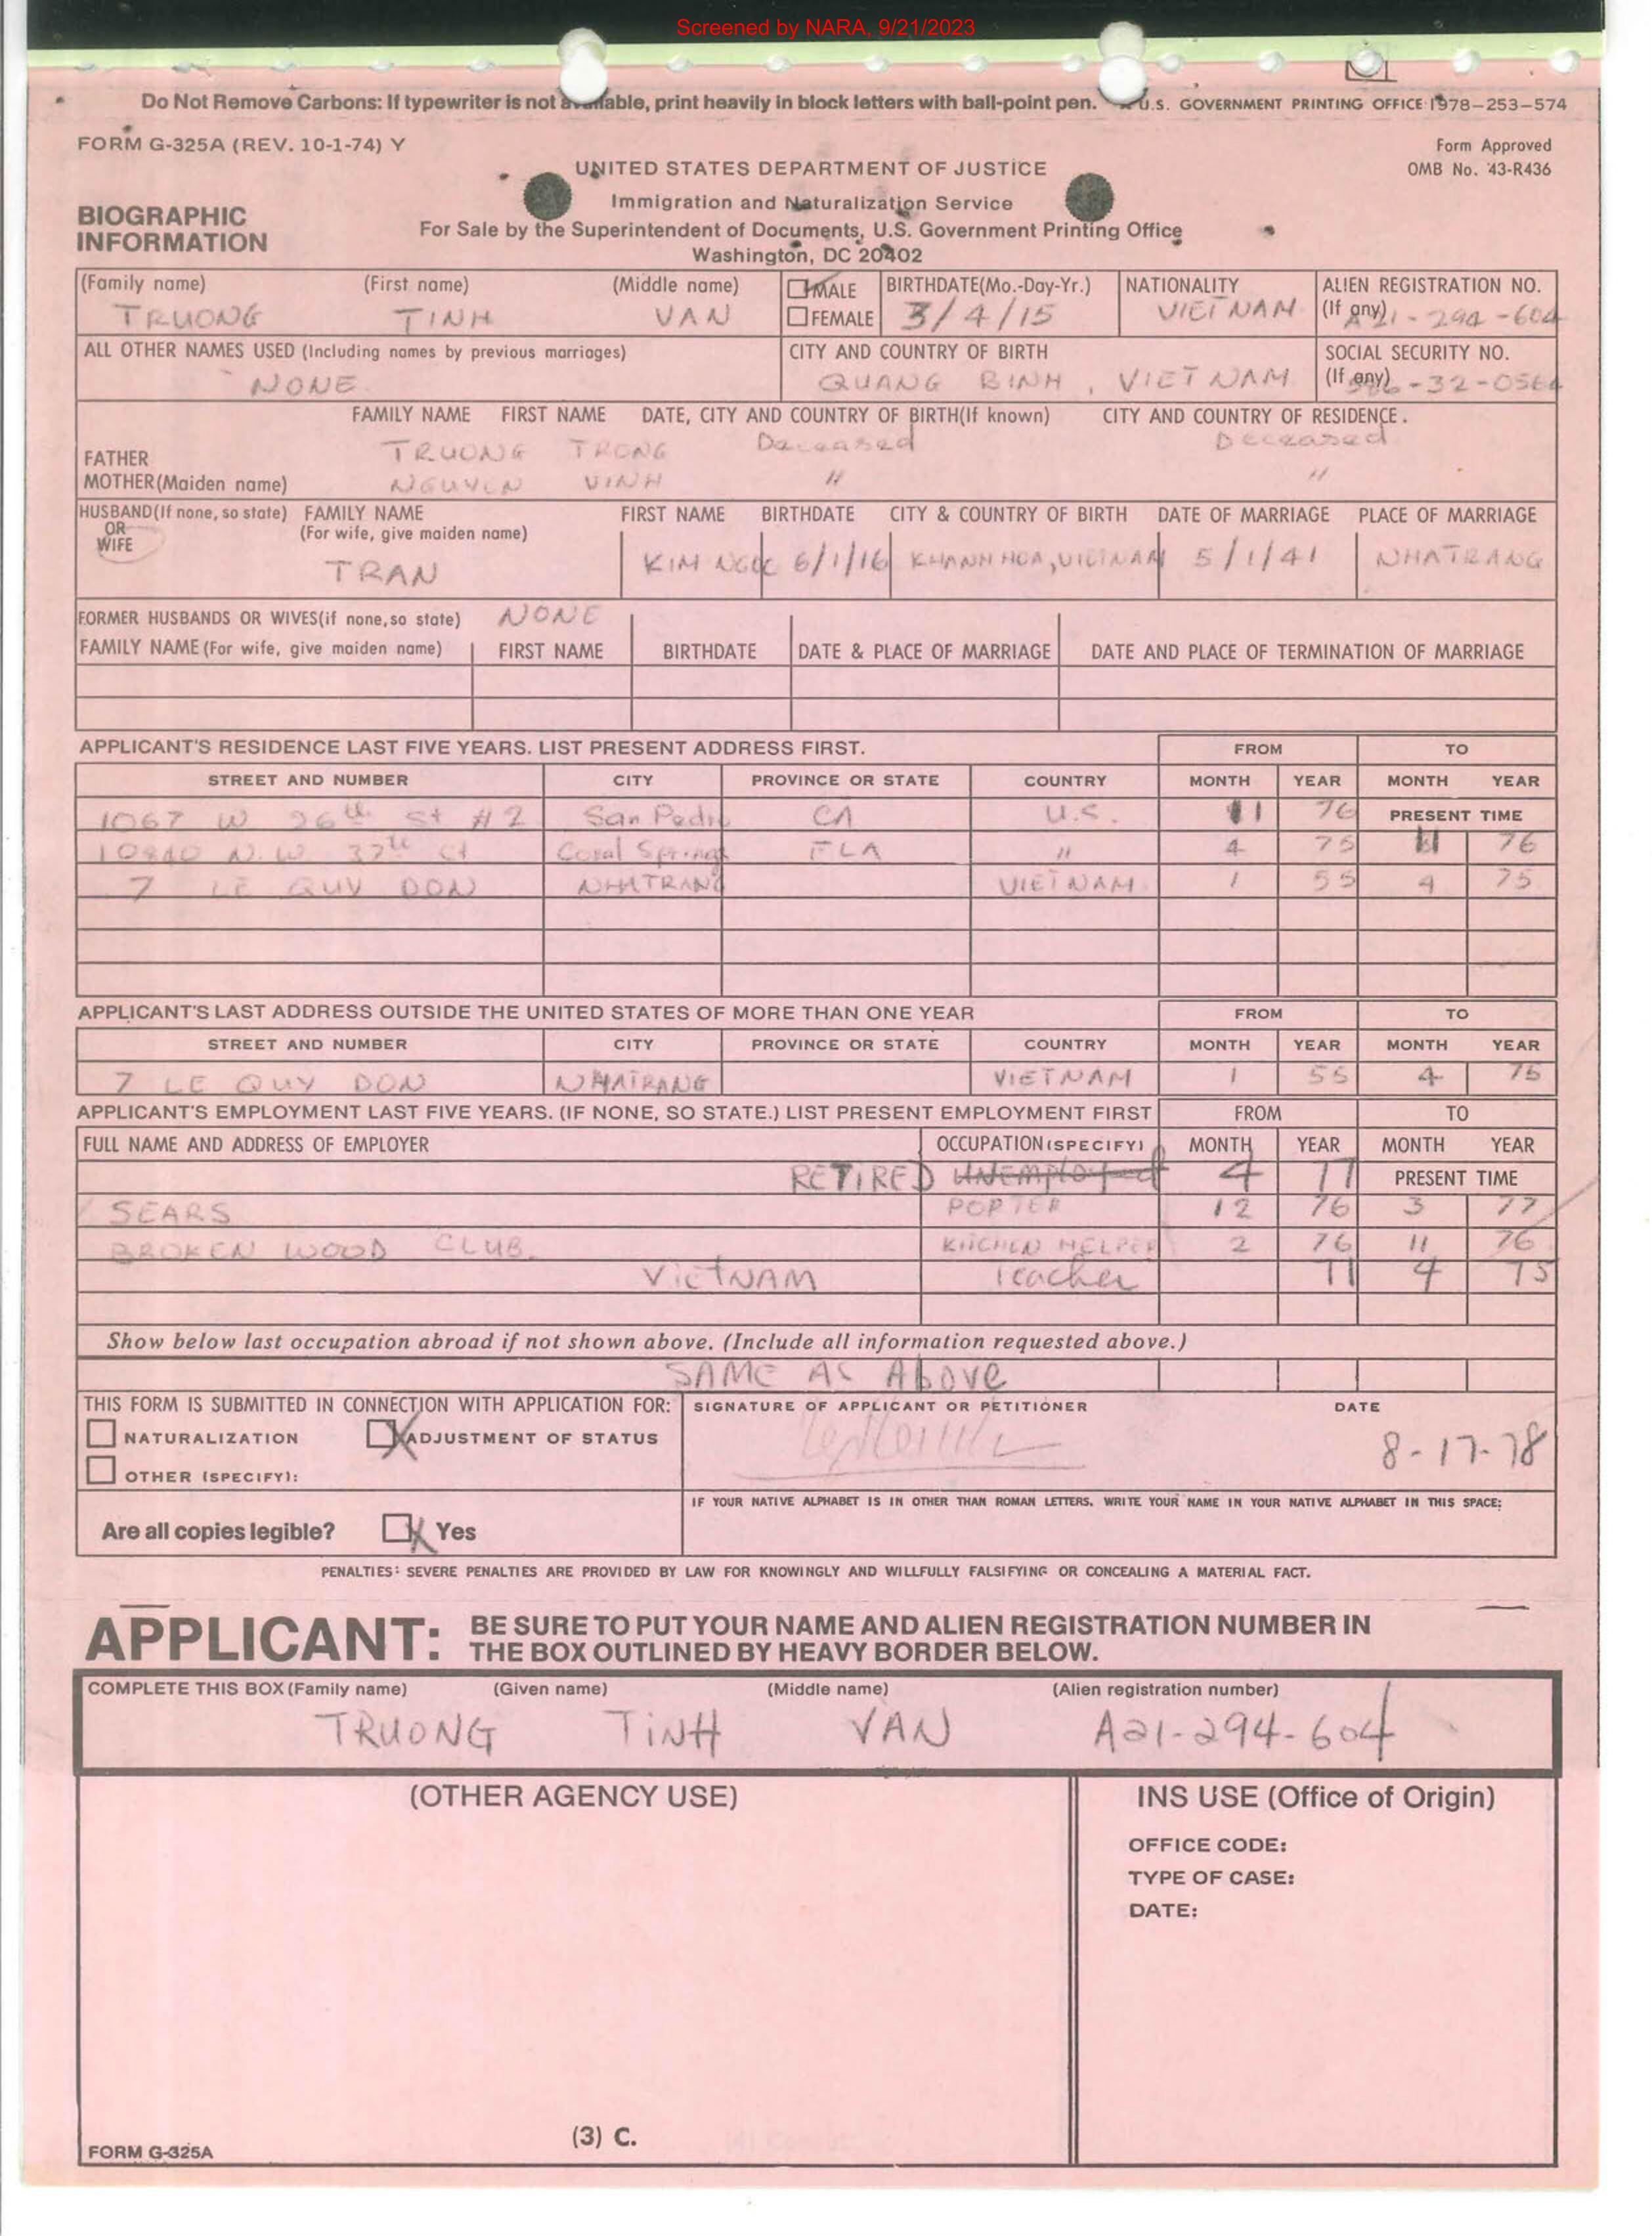 Screened by NARA, 9/21/2023
Do Not Remove Carbons: If typewriter is not available, print heavily in block letters with ball-point pen. U.S. GOVERNMENT PRINTING OFFICE 1978-253-574
FORM G-325A (REV. 10-1-74) Y
Form Approved
OMB No. 43-R436
UNITED STATES DEPARTMENT OF JUSTICE
Immigration and Naturalization Service
BIOGRAPHIC INFORMATION
For Sale by the Superintendent of Documents, U.S. Government Printing Office
Washington, DC 20402
(Family name) (First name) (Middle name) MALE FEMALE BIRTHDATE(Mo.-Day-Yr.) NATIONALITY ALIEN REGISTRATION NO. (If any)
TRUONG TINH VAN 3/4/15 VIETNAM A21-294-604
ALL OTHER NAMES USED (Including names by previous marriages) CITY AND COUNTRY OF BIRTH SOCIAL SECURITY NO. (If any)
NONE QUANG BINH, VIETNAM -32-0564
FAMILY NAME FIRST NAME DATE, CITY AND COUNTRY OF BIRTH(If known) CITY AND COUNTRY OF RESIDENCE.
FATHER TRUONG TRONG Deceased Deceased
MOTHER(Maiden name) NGUYEN VINH " "
HUSBAND(If none, so state) OR WIFE FAMILY NAME (For wife, give maiden name) FIRST NAME BIRTHDATE CITY & COUNTRY OF BIRTH DATE OF MARRIAGE PLACE OF MARRIAGE
TRAN KIM NGOC 6/1/16 KHANH HOA, VIETNAM 5/1/41 NHATRANG
FORMER HUSBANDS OR WIVES(if none,so state) NONE
FAMILY NAME (For wife, give maiden name) FIRST NAME BIRTHDATE DATE & PLACE OF MARRIAGE DATE AND PLACE OF TERMINATION OF MARRIAGE
APPLICANT'S RESIDENCE LAST FIVE YEARS. LIST PRESENT ADDRESS FIRST. FROM TO
STREET AND NUMBER CITY PROVINCE OR STATE COUNTRY MONTH YEAR MONTH YEAR
1067 W 26th St #2 San Pedro CA U.S. 11 76 PRESENT TIME
10840 N.W. 37th Ct Coral Springs FLA " 4 75 11 76
7 LE QUY DON NHATRANG VIETNAM 1 55 4 75
APPLICANT'S LAST ADDRESS OUTSIDE THE UNITED STATES OF MORE THAN ONE YEAR FROM TO
STREET AND NUMBER CITY PROVINCE OR STATE COUNTRY MONTH YEAR MONTH YEAR
7 LE QUY DON NHATRANG VIETNAM 1 55 4 75
APPLICANT'S EMPLOYMENT LAST FIVE YEARS. (IF NONE, SO STATE.) LIST PRESENT EMPLOYMENT FIRST FROM TO
FULL NAME AND ADDRESS OF EMPLOYER OCCUPATION(SPECIFY) MONTH YEAR MONTH YEAR
RETIRED UNEMPLOYED 4 77 PRESENT TIME
SEARS PORTER 12 76 3 77
BROKEN WOOD CLUB KITCHEN HELPER 2 76 11 76
VIETNAM Teacher 71 4 75
Show below last occupation abroad if not shown above. (Include all information requested above.)
SAME AS Above
THIS FORM IS SUBMITTED IN CONNECTION WITH APPLICATION FOR: SIGNATURE OF APPLICANT OR PETITIONER DATE
NATURALIZATION ADJUSTMENT OF STATUS 8-17-78
OTHER (SPECIFY):
IF YOUR NATIVE ALPHABET IS IN OTHER THAN ROMAN LETTERS, WRITE YOUR NAME IN YOUR NATIVE ALPHABET IN THIS SPACE:
Are all copies legible? Yes
PENALTIES: SEVERE PENALTIES ARE PROVIDED BY LAW FOR KNOWINGLY AND WILLFULLY FALSIFYING OR CONCEALING A MATERIAL FACT.
APPLICANT: BE SURE TO PUT YOUR NAME AND ALIEN REGISTRATION NUMBER IN
THE BOX OUTLINED BY HEAVY BORDER BELOW.
COMPLETE THIS BOX (Family name) (Given name) (Middle name) (Alien registration number)
TRUONG TINH VAN A21-294-604
(OTHER AGENCY USE) INS USE (Office of Origin)
OFFICE CODE:
TYPE OF CASE:
DATE:
(3) C.
FORM G-325A